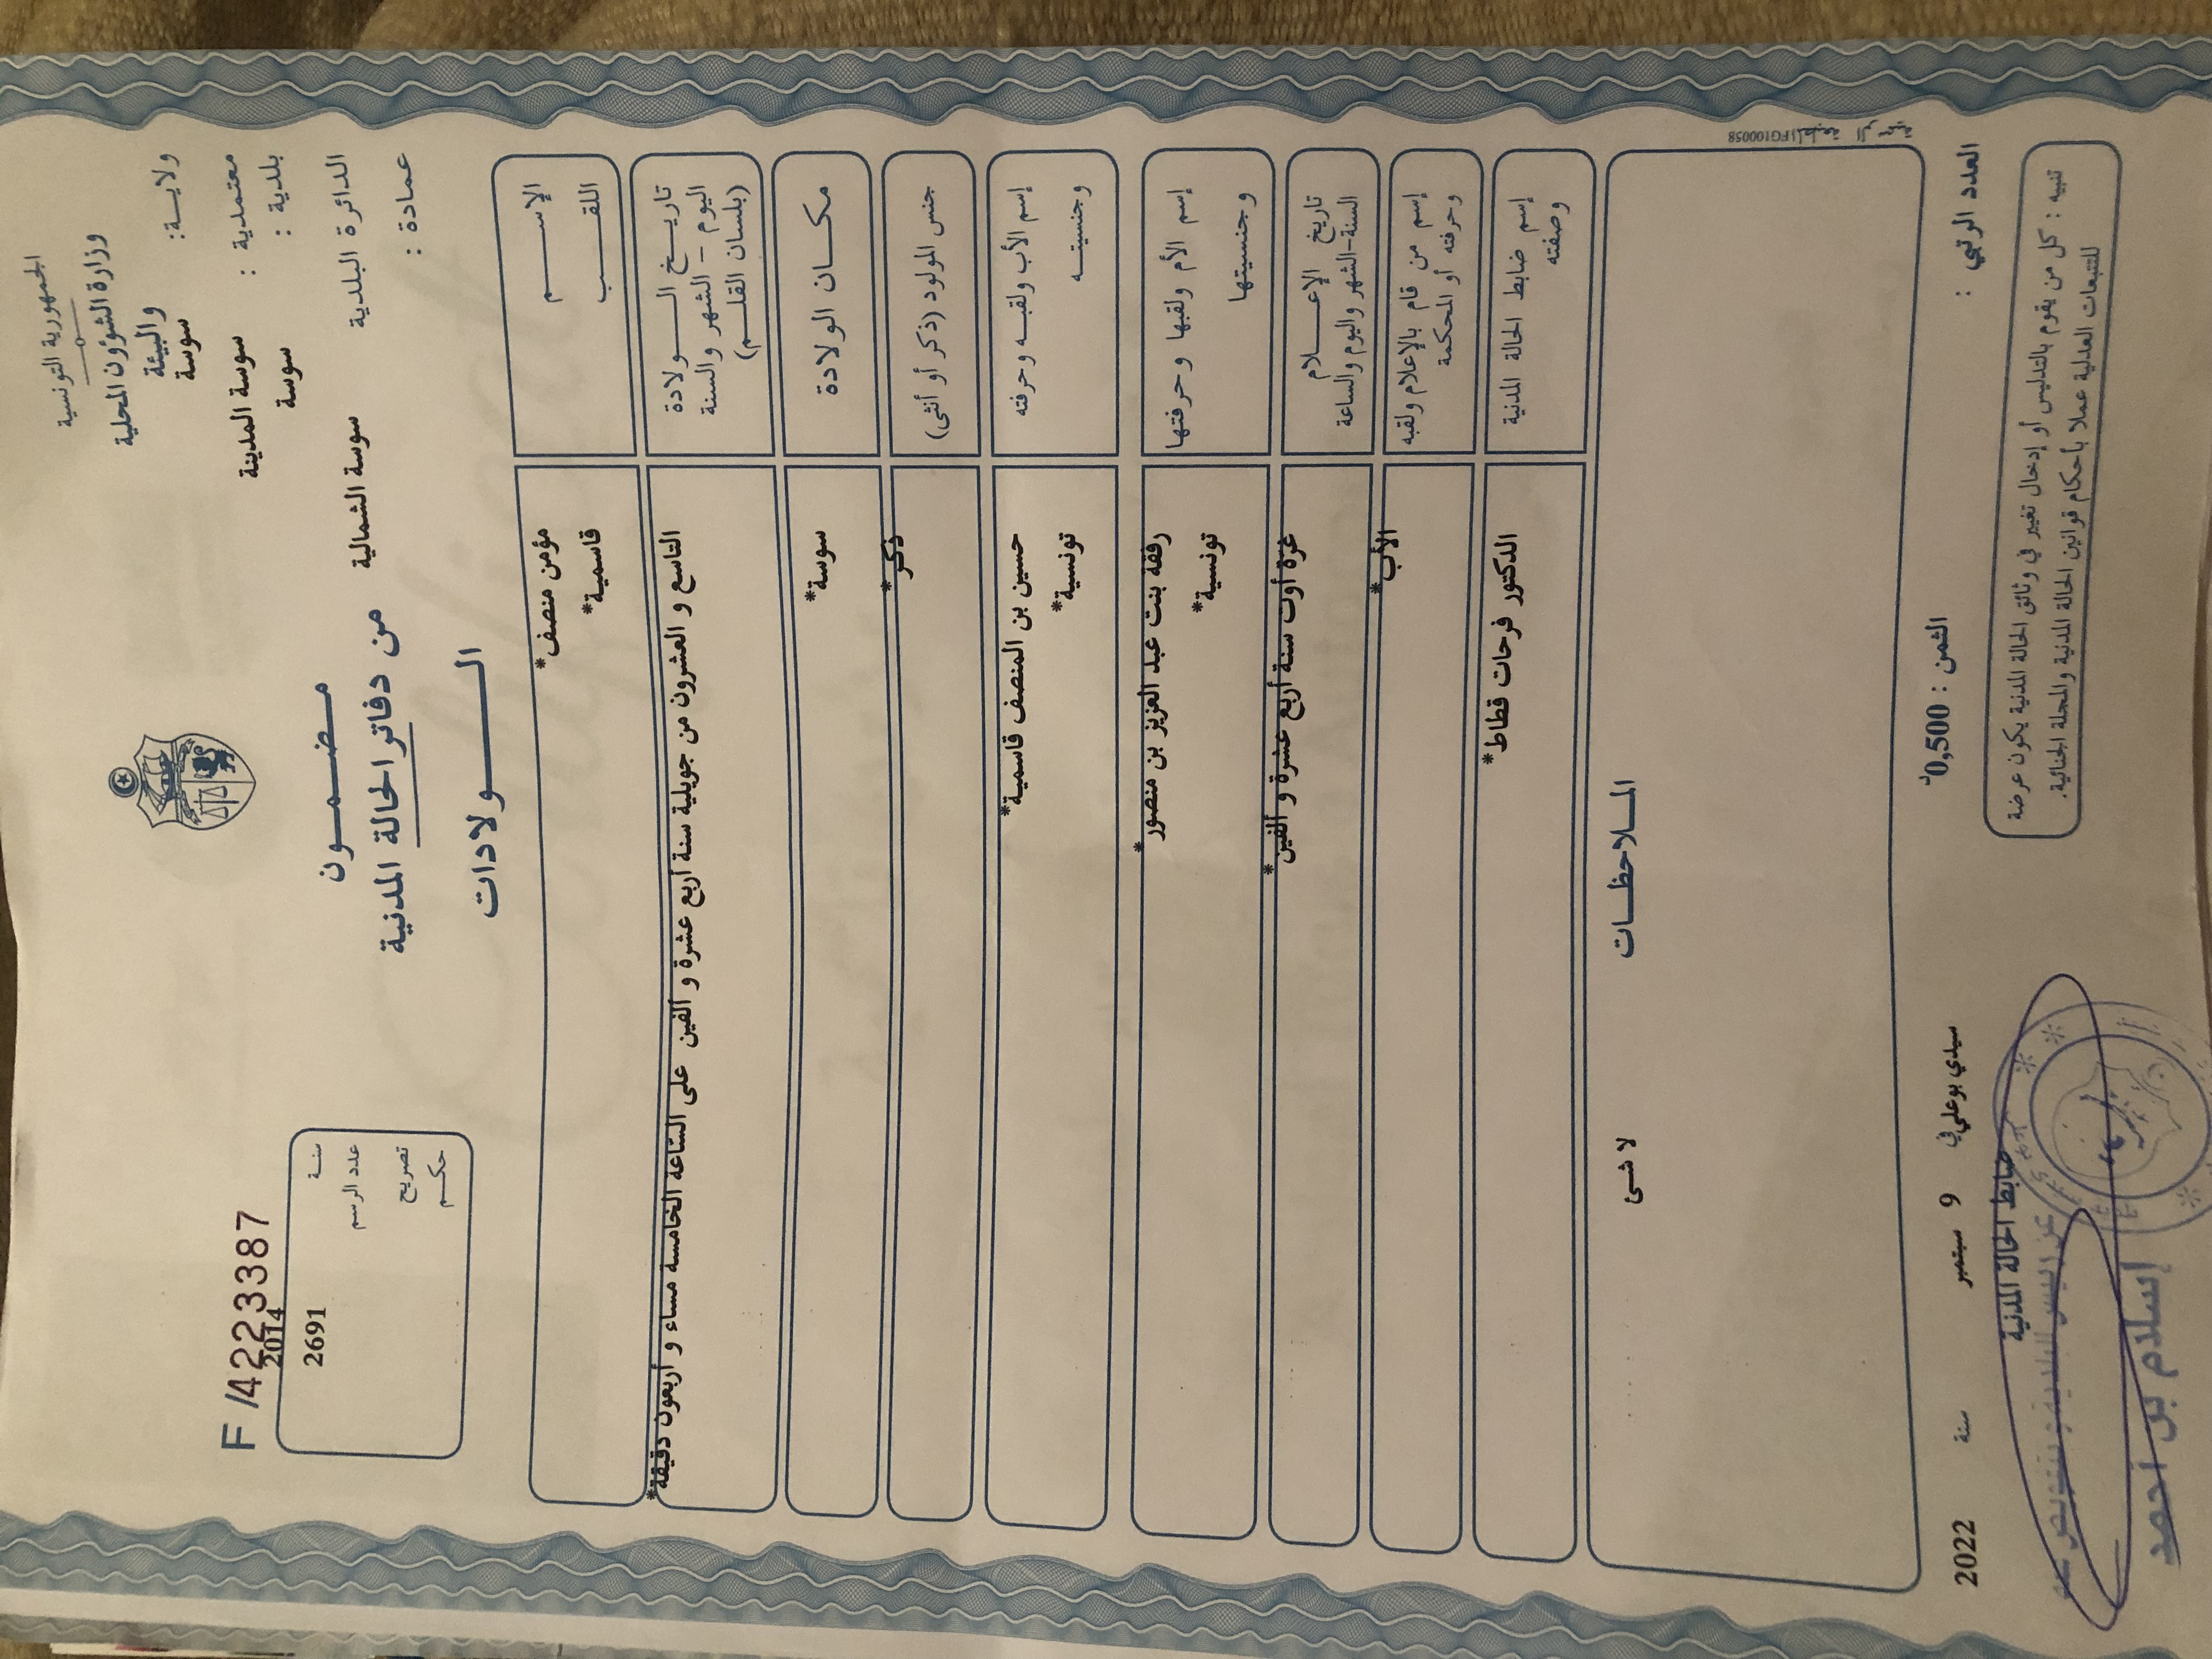 الجمهورية التونسية
وزارة الشؤون المحلية
والبيئة
ولاية: سوسة
معتمدية : سوسة المدينة
بلدية : سوسة
الدائرة البلدية سوسة الشمالية
عمادة :
F /4223387
سنة 2014
عدد الرسم 2691
تصريح
حكم
مضمون
من دفاتر الحالة المدنية
الولادات
الإسم مؤمن منصف*
اللقب قاسمية*
تاريخ الولادة
اليوم - الشهر والسنة
(بلسان القلم)
التاسع و العشرون من جويلية سنة أربع عشرة و ألفين على السّاعة الخامسة مساء و أربعون دقيقة*
مكان الولادة سوسة*
جنس المولود (ذكر أو أنثى) ذكر*
إسم الأب ولقبه وحرفته حسين بن المنصف قاسمية*
وجنسيته تونسية*
إسم الأم ولقبها وحرفتها رفقة بنت عبد العزيز بن منصور*
وجنسيتها تونسية*
تاريخ الإعلام
السنة-الشهر واليوم والساعة
غرة أوت سنة أربع عشرة و ألفين*
إسم من قام بالإعلام ولقبه
وحرفته أو المحكمة
الأب*
إسم ضابط الحالة المدنية
وصفته
الدكتور فرحات قطاط*
الملاحظات
لا شئ
FG100058
العدد الرتبي :
الثمن : 0,500د
سيدي بوعلي في 9 سبتمبر سنة 2022
ضابط الحالة المدنية
تنبيه : كل من يقوم بالتدليس أو إدخال تغيير في وثائق الحالة المدنية يكون عرضة
للتتبعات العدلية عملا بأحكام قوانين الحالة المدنية والمجلة الجنائية.
إسلام بن أحمد